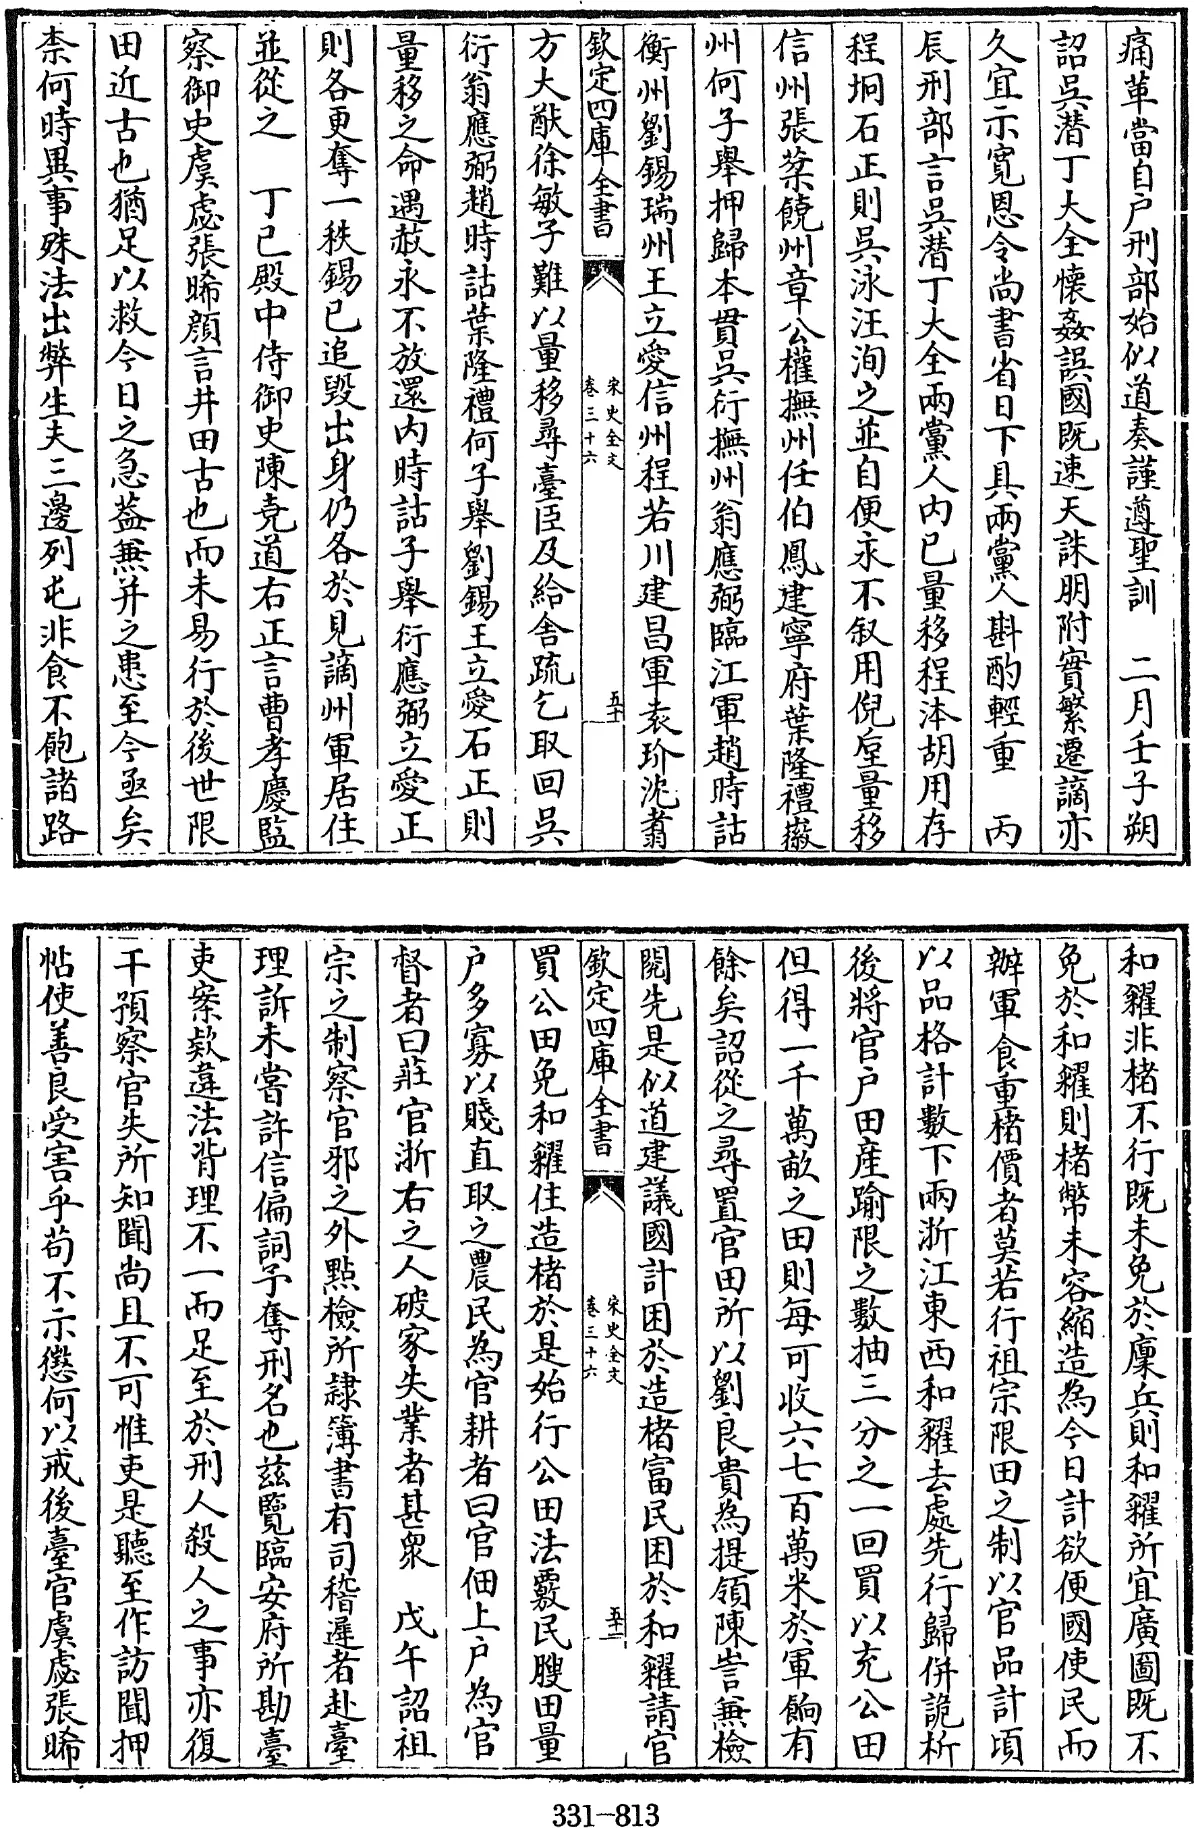 痛革當自户刑部始似道奏謹遵聖訓　二月壬子朔
詔吳潜丁大全懷姦誤國既速天誅朋附實繁遷謫亦
久宜示寛恩令尚書省日下具兩黨人斟酌輕重　丙
辰刑部言吳潜丁大全兩黨人内已量移程沐胡用存
程坰石正則吳泳汪洵之並自便永不叙用倪垕量移
信州張桀饒州章公權撫州任伯鳳建寧府葉隆禮撥
州何子舉押歸本貫吳衍撫州翁應弼臨江軍趙時詁
衡州劉錫瑞州王立愛信州程若川建昌軍袁玠沈翥
欽定四庫全書
宋史全文
卷三十六
五十
方大猷徐敏子難以量移尋臺臣及給舍疏乞取回吳
衍翁應弼趙時詁葉隆禮何子舉劉錫王立愛石正則
量移之命遇赦永不放還内時詁子舉衍應弼立愛正
則各更奪一秩錫已追毀出身仍各於見謫州軍居住
並從之　丁巳殿中侍御史陳堯道右正言曹孝慶監
察御史虞虙張晞顔言井田古也而未易行於後世限
田近古也猶足以救今日之急葢兼并之患至今亟矣
柰何時異事殊法出弊生夫三邊列屯非食不飽諸路
和糴非楮不行既未免於廪兵則和糴所宜廣圖既不
免於和糴則楮幣未容縮造為今日計欲便國便民而
辦軍食重楮價者莫若行祖宗限田之制以官品計頃
以品格計數下兩浙江東西和糴去處先行歸併詭析
後將官户田産踰限之數抽三分之一回買以充公田
但得一千萬畝之田則每可收六七百萬米於軍餉有
餘矣詔從之尋置官田所以劉良貴為提領陳訔兼檢
閱先是似道建議國計困於造楮富民困於和糴請官
欽定四庫全書
宋史全文
卷三十六
五十一
買公田免和糴住造楮於是始行公田法覈民腴田量
户多寡以賤直取之農民為官耕者曰官佃上户為官
督者曰莊官浙右之人破家失業者甚衆　戊午詔祖
宗之制察官邪之外點檢所隷簿書有司稽遲者赴臺
理訴未嘗許信偏詞予奪刑名也兹覽臨安府所勘臺
吏案欵違法背理不一而足至於刑人殺人之事亦復
干預察官失所知聞尚且不可惟吏是聽至作訪聞押
帖使善良受害乎苟不示懲何以戒後臺官虞虙張晞
331-813